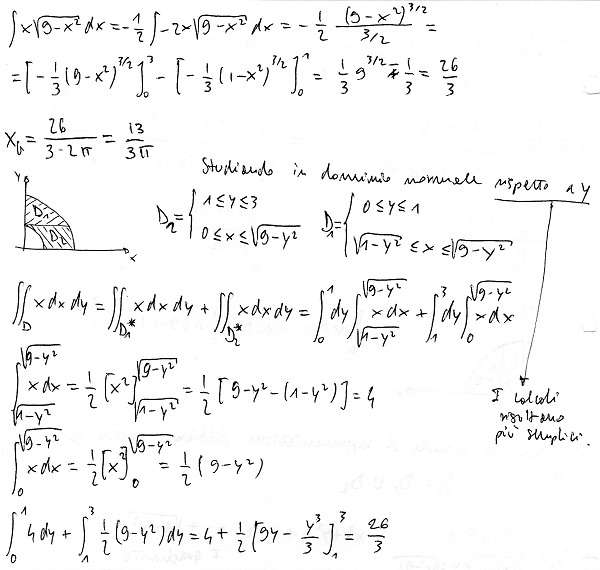 ∫x√(9-x²) dx = -1/2 ∫-2x√(9-x²) dx = -1/2 (9-x²)^(3/2) / (3/2) =
= [-1/3 (9-x²)^(3/2)]₀³ - [-1/3 (1-x²)^(3/2)]₀¹ = 1/3 9^(3/2) - 1/3 = 26/3
X_G = 26/(3·2π) = 13/(3π)
Studiando in dominio normale rispetto a y
y D₁ D₂ x
D₂ = { 1≤y≤3
0≤x≤√(9-y²)
D₁ = { 0≤y≤1
√(1-y²) ≤ x ≤ √(9-y²)
∬_D x dx dy = ∬_D₁* x dx dy + ∬_D₂* x dx dy = ∫₀¹ dy ∫_√(1-y²)^√(9-y²) x dx + ∫₁³ dy ∫₀^√(9-y²) x dx
∫_√(1-y²)^√(9-y²) x dx = 1/2 [x²]_√(1-y²)^√(9-y²) = 1/2 [9-y²-(1-y²)] = 4
I calcoli
risultano
più semplici.
∫₀^√(9-y²) x dx = 1/2 [x²]₀^√(9-y²) = 1/2 (9-y²)
∫₀¹ 4 dy + ∫₁³ 1/2 (9-y²) dy = 4 + 1/2 [9y - y³/3]₁³ = 26/3